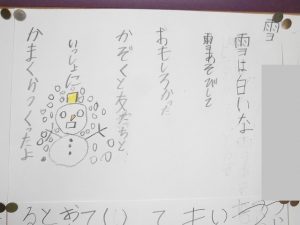 雪
雪は白いな
雪あそびして
おもしろかった
かぞくと友だちと
いっしょに
かまくらつくったよ